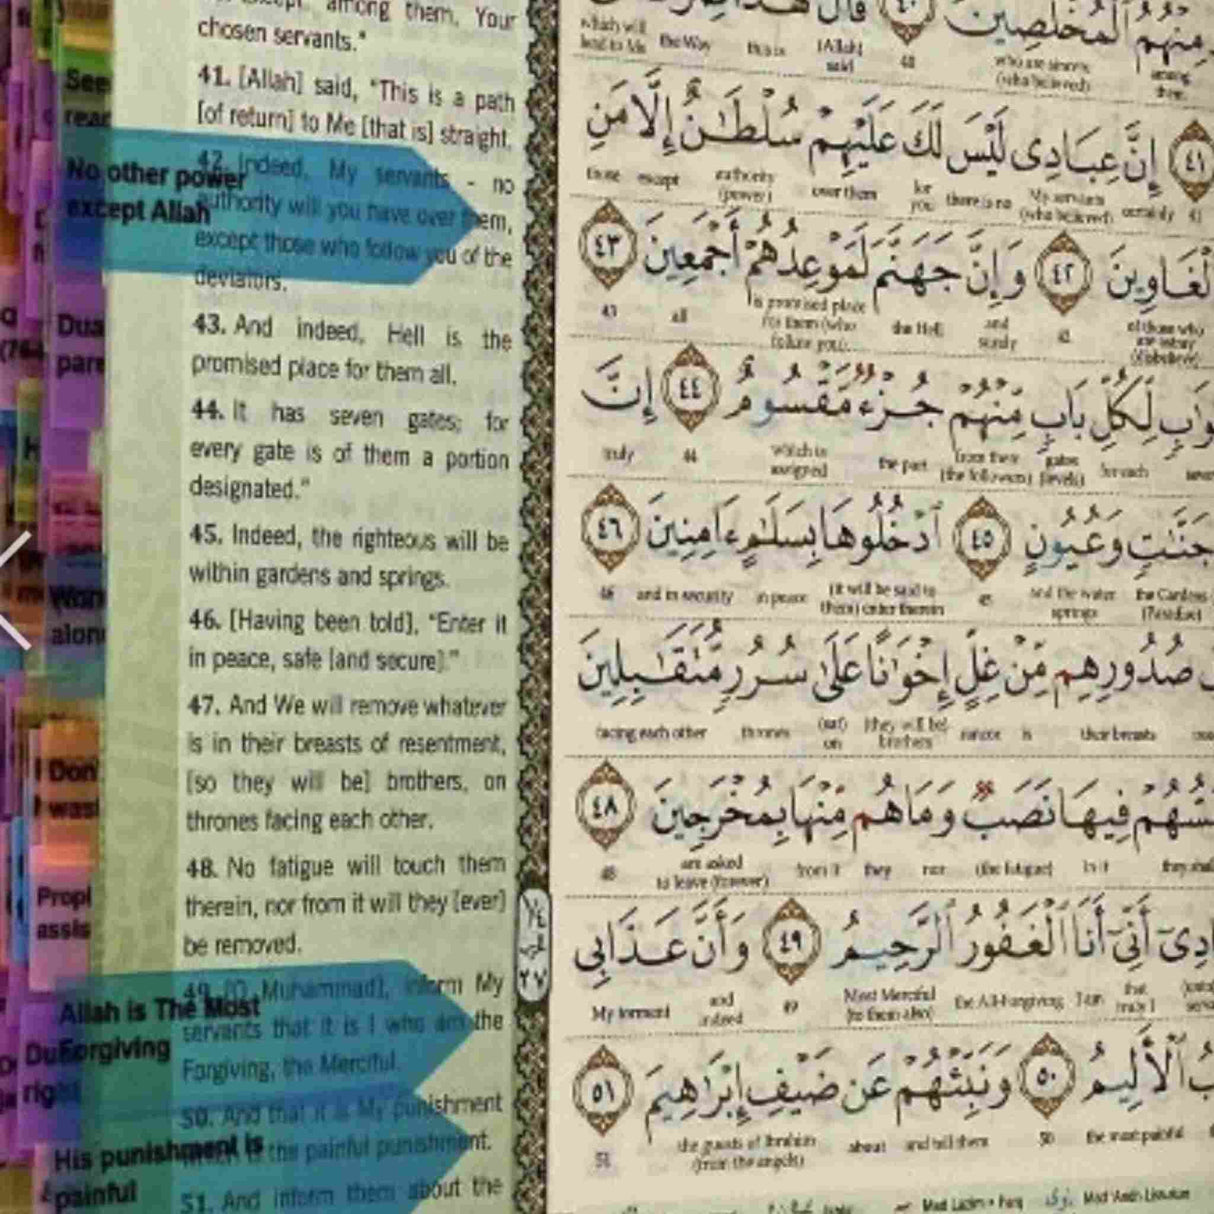 among them, Your
chosen servants."
41. [Allah] said, "This is a path
[of return] to Me [that is] straight.
42. Indeed, My servants - no
authority will you have over them,
except those who follow you of the
deviators.
43. And indeed, Hell is the
promised place for them all.
44. It has seven gates; for
every gate is of them a portion
designated."
45. Indeed, the righteous will be
within gardens and springs.
46. [Having been told], "Enter it
in peace, safe [and secure]."
47. And We will remove whatever
is in their breasts of resentment,
[so they will be] brothers, on
thrones facing each other.
48. No fatigue will touch them
therein, nor from it will they [ever]
be removed.
49. [O Muhammad], inform My
servants that it is I who am the
Forgiving, the Merciful.
50. And that it is My punishment
which is the painful punishment.
51. And inform them about the
No other power
except Allah
Dua
pare
alon
Don'
I was
Propl
assis
Allah is The Most
Forgiving
right
His punishment is
painful
مِنْهُمُ الْمُخْلَصِينَ ٤٠ قَالَ هَٰذَا
which will lead to Me the Way this is (Allah) said 40 who are sincere (who believed) among them
٤١ إِنَّ عِبَادِى لَيْسَ لَكَ عَلَيْهِمْ سُلْطَٰنٌ إِلَّا مَنِ
those except authority (power) over them for you there is no My servants (who believed) certainly 41
لْغَاوِينَ ٤٢ وَإِنَّ جَهَنَّمَ لَمَوْعِدُهُمْ أَجْمَعِينَ ٤٣
43 all is promised place for them (who follow you) the Hell and surely 42 of those who are astray (disbelieve)
وَابٍ لِكُلِّ بَابٍ مِّنْهُمْ جُزْءٌ مَّقْسُومٌ ٤٤ إِنَّ
truly 44 which is assigned the part from them (the followers) gates (levels) for each
جَنَّٰتٍ وَعُيُونٍ ٤٥ ٱدْخُلُوهَا بِسَلَٰمٍ ءَامِنِينَ ٤٦
46 and in security in peace (it will be said to them) enter therein 45 and the water springs the Gardens (Paradise)
صُدُورِهِم مِّنْ غِلٍّ إِخْوَٰنًا عَلَىٰ سُرُرٍ مُّتَقَٰبِلِينَ
facing each other thrones (sat) on (they will be) brothers rancor is their breasts
سُّهُمْ فِيهَا نَصَبٌ وَمَا هُم مِّنْهَا بِمُخْرَجِينَ ٤٨
48 are asked to leave (forever) from it they nor (the fatigue) in it
دِىٓ أَنِّىٓ أَنَا ٱلْغَفُورُ ٱلرَّحِيمُ ٤٩ وَأَنَّ عَذَابِى
My torment and indeed 49 Most Merciful (to them also) the All-Forgiving I am that
بُ ٱلْأَلِيمُ ٥٠ وَنَبِّئْهُمْ عَن ضَيْفِ إِبْرَٰهِيمَ ٥١
51 the guests of Ibrahim (from the angels) about and tell them 50 the most painful